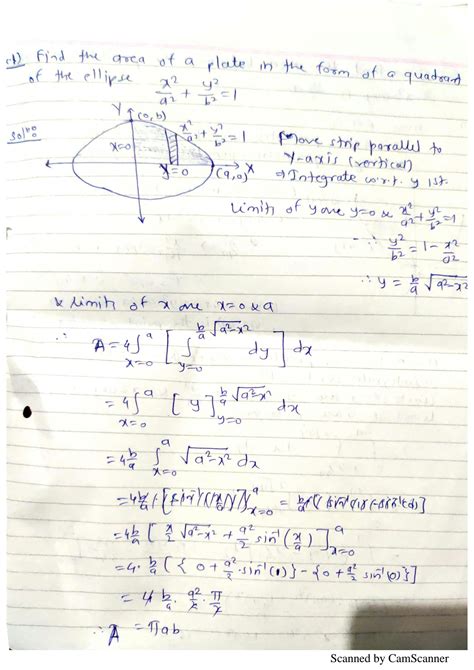 d) Find the area of a plate in the form of a quadrant
of the ellipse x²/a² + y²/b² = 1
Solⁿ⇒
Y (0,b)
x²/a² + y²/b² = 1
x=0
y=0 (a,0) X
Move strip parallel to
Y-axis (vertical)
⇒ Integrate w.r.t. y 1st.
Limits of y are y=0 & x²/a² + y²/b² = 1
∴ y²/b² = 1 - x²/a²
∴ y = b/a √(a²-x²)
& limits of x are x=0 & a
∴ A = 4 ∫_{x=0}^{a} [ ∫_{y=0}^{b/a √(a²-x²)} dy ] dx
= 4 ∫_{x=0}^{a} [ y ]_{y=0}^{b/a √(a²-x²)} dx
= 4 b/a ∫_{x=0}^{a} √(a²-x²) dx
= 4 b/a
= 4 b/a [ x/2 √(a²-x²) + a²/2 sin⁻¹(x/a) ]_{x=0}^{a}
= 4 · b/a [ { 0 + a²/2 · sin⁻¹(1) } - { 0 + a²/2 sin⁻¹(0) } ]
= 4 b/a · a²/2 · π/2
∴ A = πab
Scanned by CamScanner